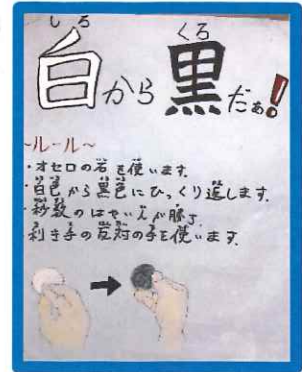 しろ くろ
白から黒だぁ!
~ルール~
・オセロの石を使います。
・白色から黒色にひっくり返します。
・秒数のはやい人が勝ち
利き手の反対の手を使います。